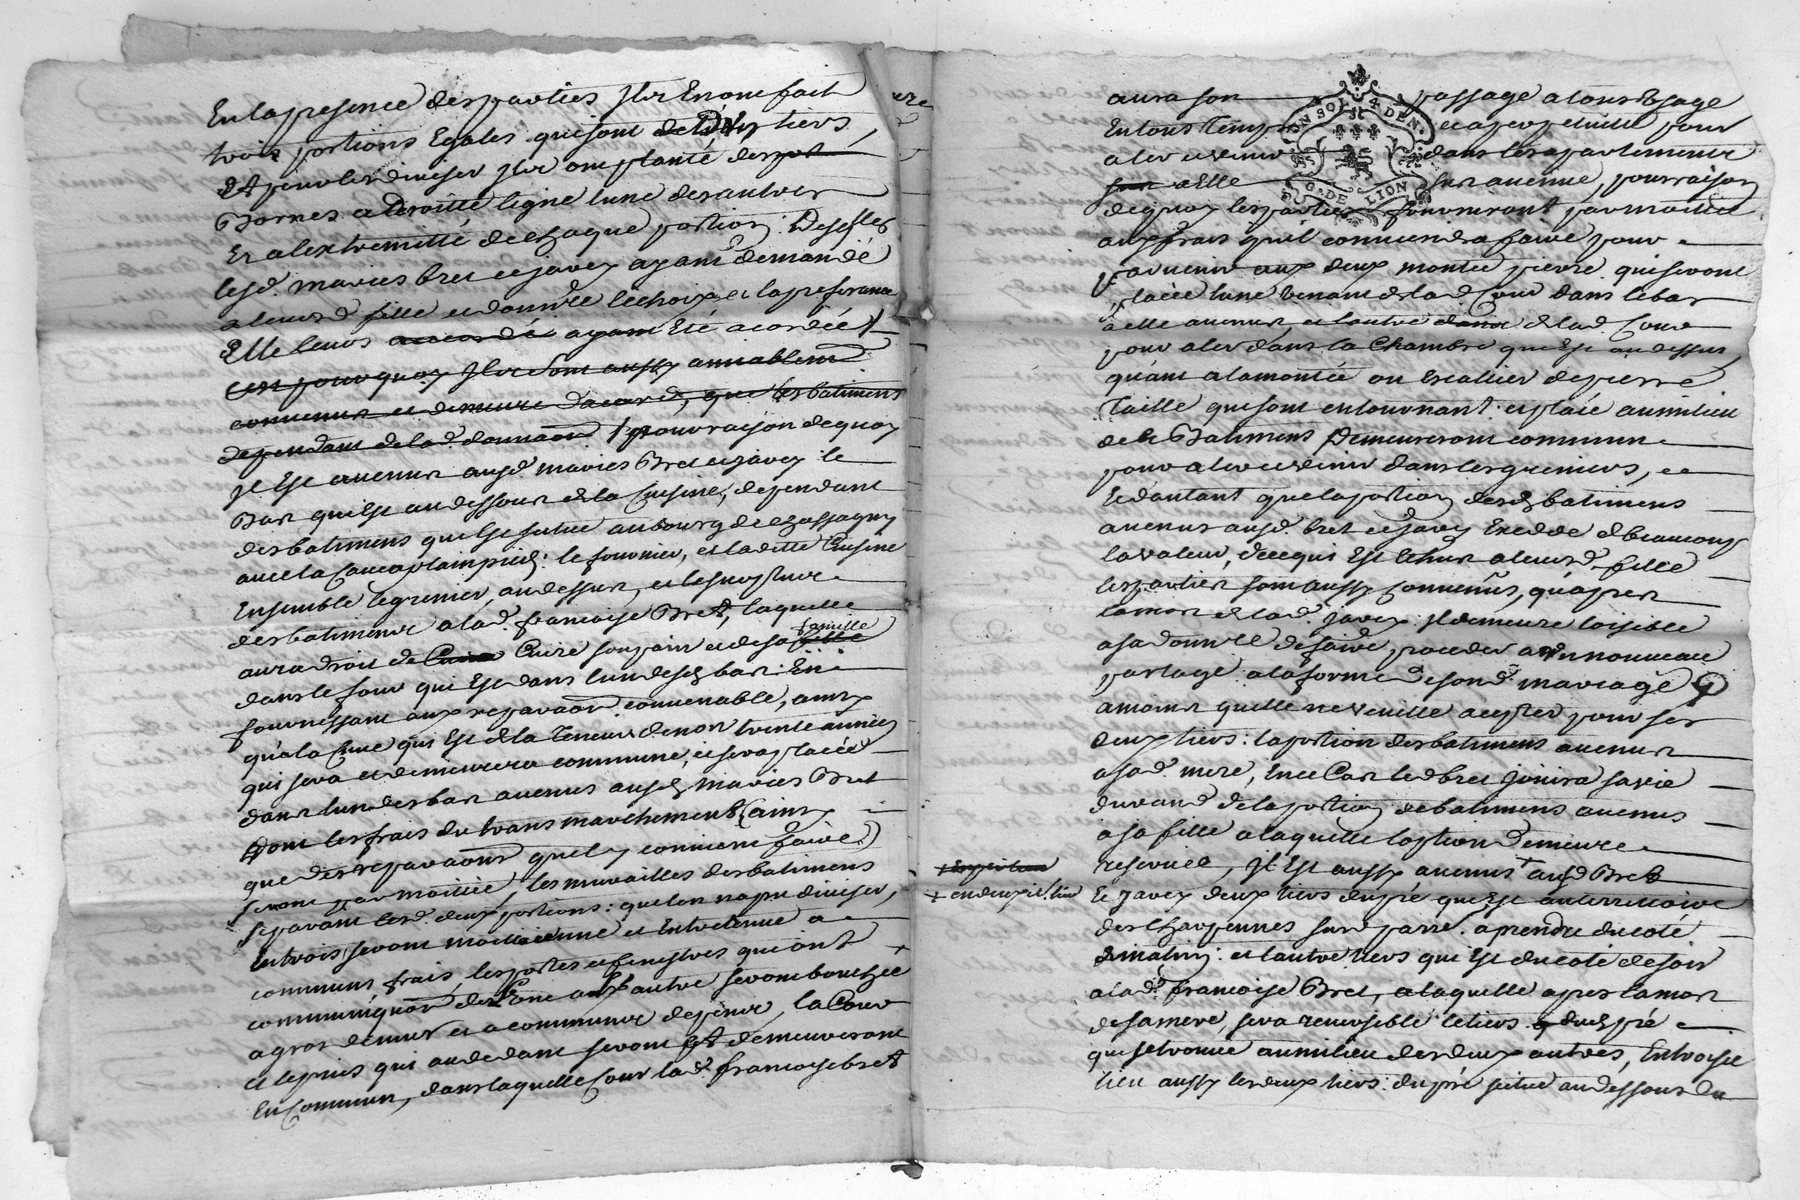 En la presence des parties Ils En ont fait
trois portions Egales qui sont de Deux tiers
Et pour les diviser Ils ont planté des
Bornes a Droitte ligne lune des autres
Et a lextremitté de chaque portion. Desqles
lesd. maries bret et javey ayant demandé
a leurd fille et donnée le choix et la preferance
Elle leurs accordée ayant Eté acordée
cest pourquoy Ils se sont aussy amiablemt
convenus et demeuré dacord, que les batiments
dependant de lad. donnaon pour raison de quoy
Il Est avenus ausd. maries Bret et javey le
Bas qui Est au dessous de la Cuisine, dependant
des batimens quils Est situé au bourg de chassagny
avec la Cave a plain pied: le fournier, et la ditte Cuisine
Ensemble le grenier, au dessus, et le surplus
des batimens a lad. francoise Bret, laquelle
famille
aura droit de Cuire Cuire son pain et de sa fille
dans le four qui Est dans lun desd bas: En
fournissant aux reparaons convenable, ainsy
qua la Cuve qui Est de la Teneur denon trente années
qui sera et demeurera commune, et sera placée
dans lun des bas avenus ausd maries Bret
Dont les frais du transmarchement (ainsy
que des reparaons quely convient faire)
seront par moitié, les murailles des batimens
separant lesd. deux portions: que lon na pu diviser,
En trois seront moitoienne et Entretenue a
communs frais, les portes et fenestres qui ont
communiquaon de lune aux autre seront bouchée
a gros de mur et a communs depens, la Cour
et le puis qui au dedans seront et demeureront
En Commun, dans laquelle Cour lad. francoise bret
aura son passage a tous Usage
En tous Temps et a perpetuitté pour
aler et venir dans les apartements
sur a Elle avenue pour raison
de quoy les parties fourniront par moitié
aux frais quil conviendra faire pour
parvenir aux deux montée pierre qui seront
placée lune venant de lad Cour dans le bas
a elle avenus, et lautre dans de lad Cour
pour aler dans la Chambre que Est au dessus
quant a la montée ou Escalier de pierre
Taille qui sont en tournant: et placé au milieu
de ce Batiment Demeureront commun
pour aler et venir dans les greniers,
Et dautant que la portion desd batimens
avenus ausd. bret et Javey Excedde de beaucoup
la valeur, de ce qui Est Echus a leurd. fille
les parties sont aussy Convenus, quapres
la mort de lad. Javey Il demeure loisible
a sa donnée de faire, proceder a un nouveau
partage a la forme de sond. mariage
amoins quelle ne veuille accepter pour ses
deux tiers: la portion des batimens avenus
a sad. mere, En ce Cas led bret jouira sa vie
durand de la portion de batimens avenus
a sa fille a laquelle loption Demeure
reservée, Il Est aussy avenus + ausd Bret
+ en deux piè. lieu
Et Javey deux tiers du pré que Est au territoire
des Charpennes sur parré: a prendre du coté
de matin: et lautre tiers qui Est du coté de soir
a lad. francoise Bret, a laquelle apres la mort
de sa mere, sera reversible le tiers dud pré
qui se trouve au milieu des deux autres, En troisie
lieu aussy les deux tiers: du pré situé au dessous du
N 80 4 DEN.
G. DE LION